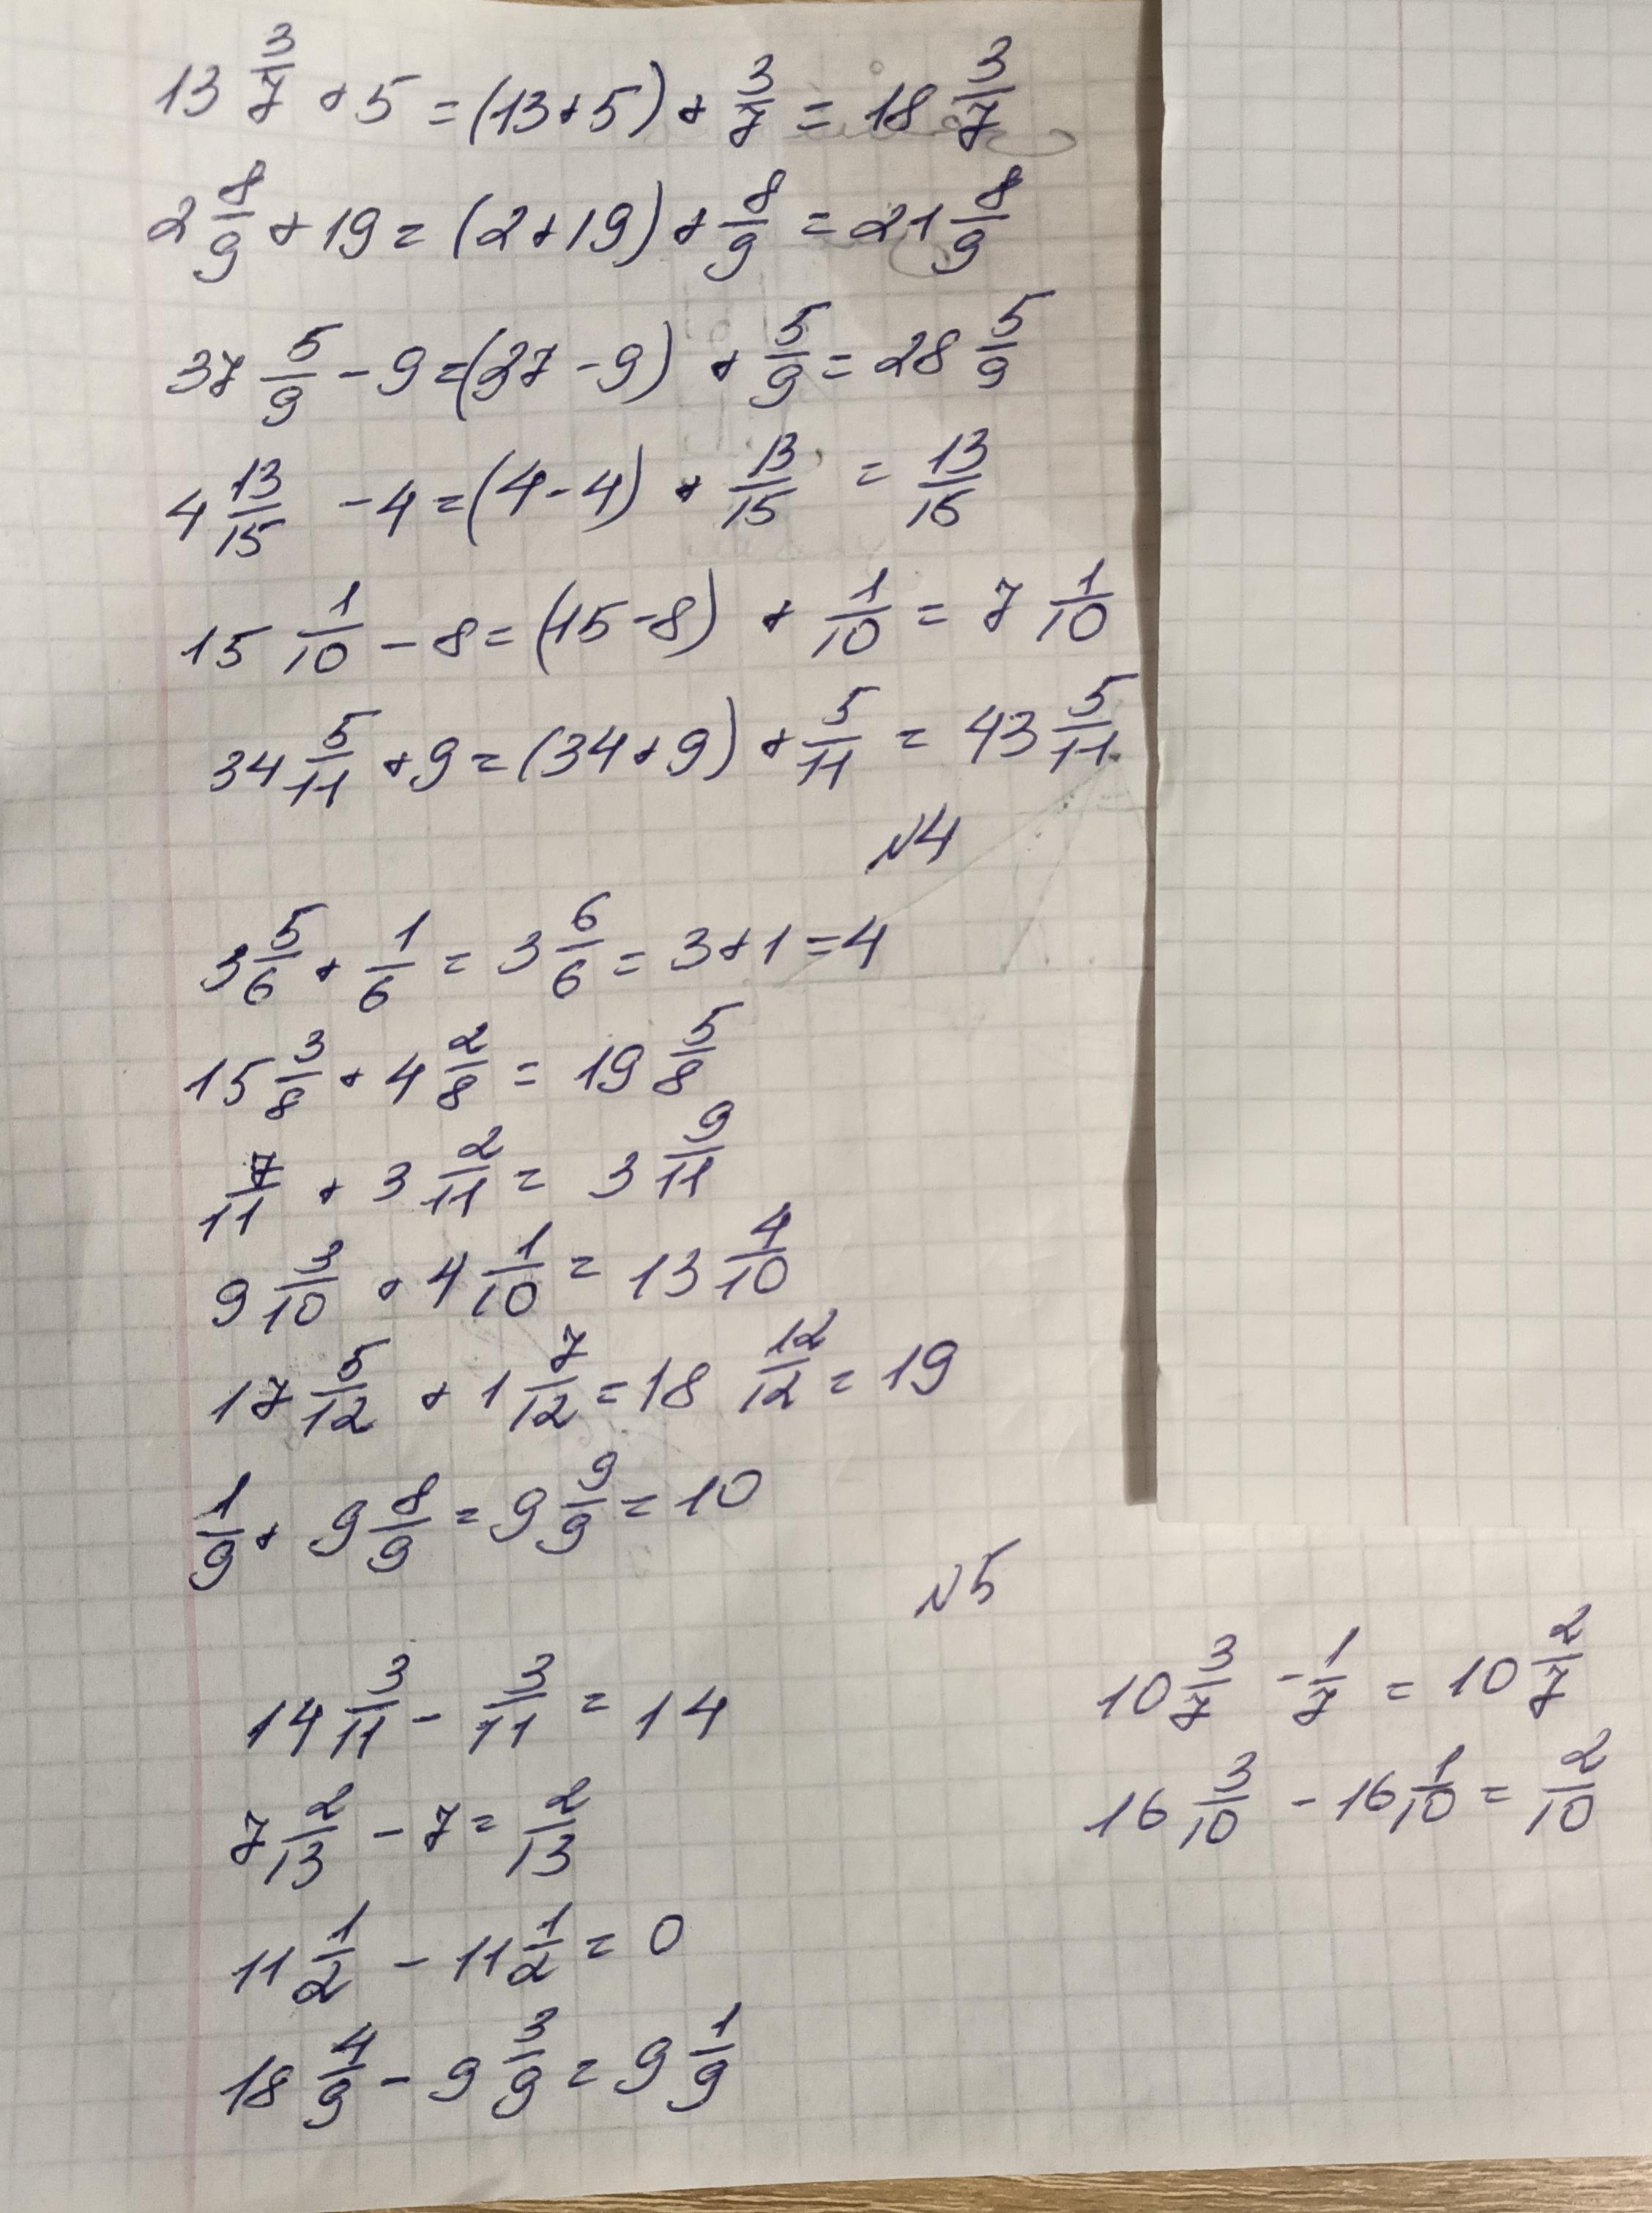 13 3/7 + 5 = (13+5) + 3/7 = 18 3/7
2 8/9 + 19 = (2+19) + 8/9 = 21 8/9
37 5/9 - 9 = (37-9) + 5/9 = 28 5/9
4 13/15 - 4 = (4-4) + 13/15 = 13/15
15 1/10 - 8 = (15-8) + 1/10 = 7 1/10
34 5/11 + 9 = (34+9) + 5/11 = 43 5/11
№4
3 5/6 + 1/6 = 3 6/6 = 3+1 = 4
15 3/8 + 4 2/8 = 19 5/8
7/11 + 3 2/11 = 3 9/11
9 3/10 + 4 1/10 = 13 4/10
17 5/12 + 1 7/12 = 18 12/12 = 19
1/9 + 9 8/9 = 9 9/9 = 10
№5
14 3/11 - 3/11 = 14
7 2/13 - 7 = 2/13
11 1/2 - 11 1/2 = 0
18 4/9 - 9 3/9 = 9 1/9
10 3/7 - 1/7 = 10 2/7
16 3/10 - 16 1/10 = 2/10